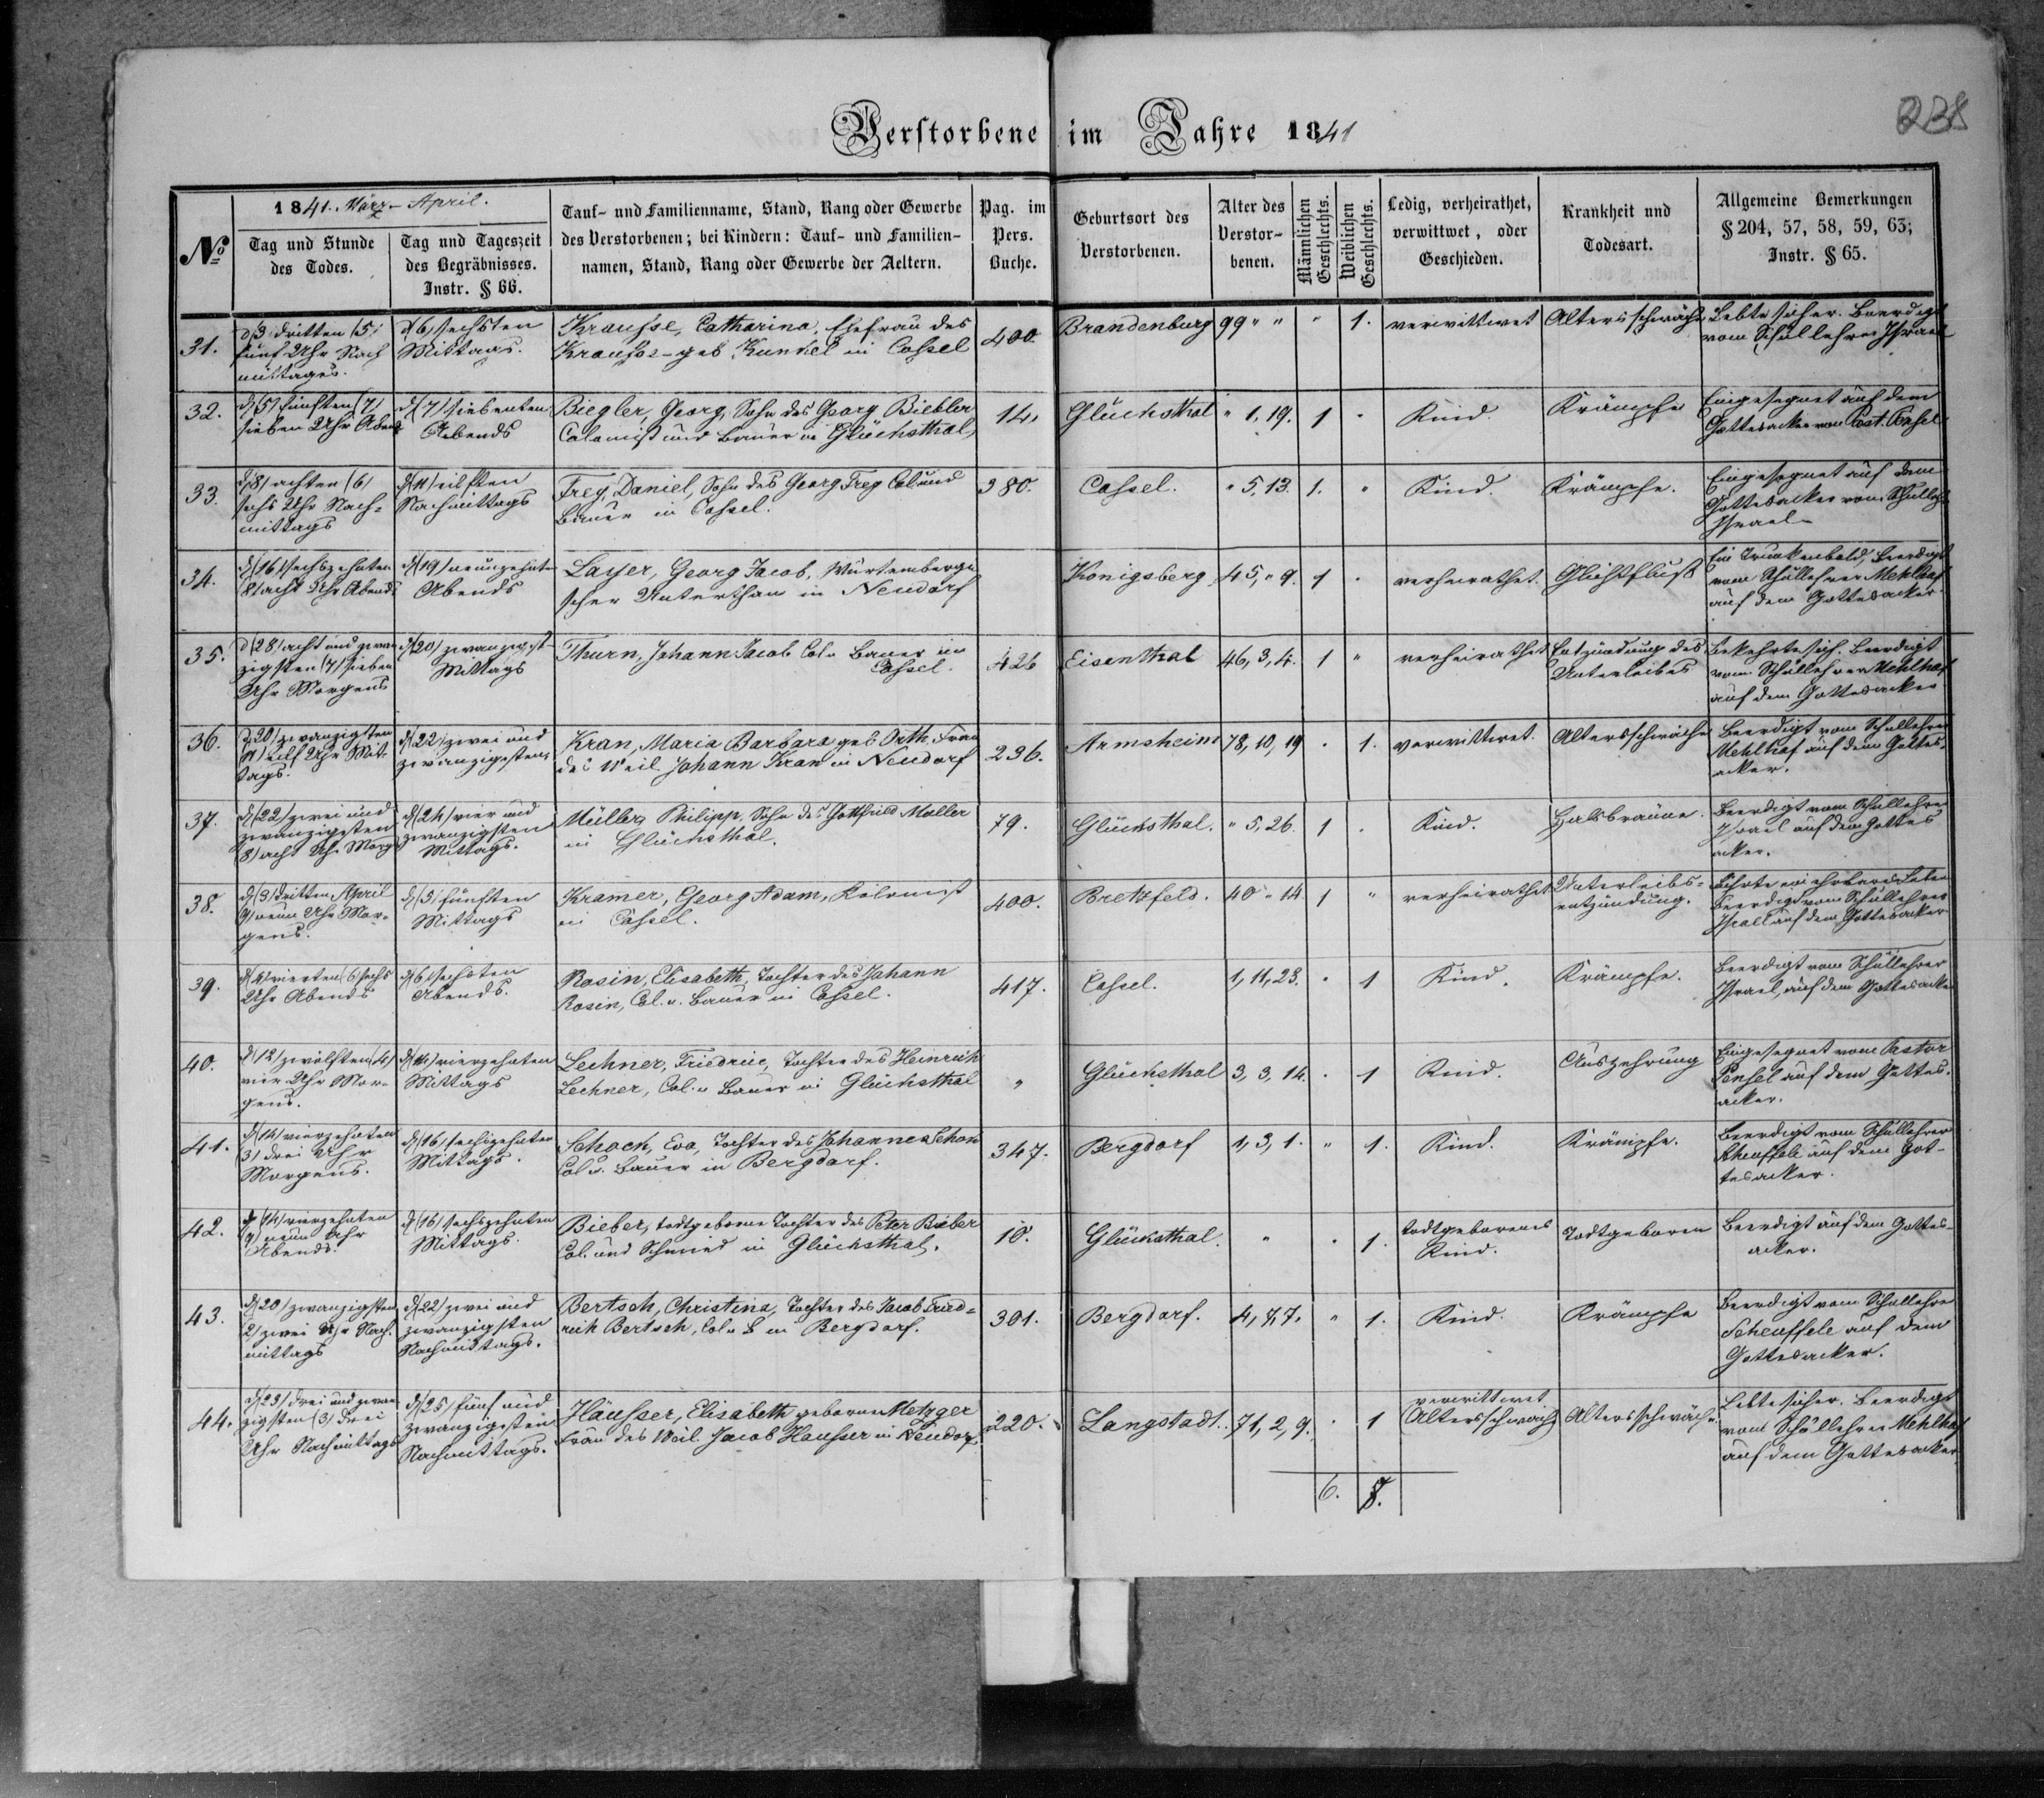 Verstorbene im Jahre 1841
238
№
1841. März - April.
Tag und Stunde
des Todes.
Tag und Tageszeit
des Begräbnisses.
Instr. § 66.
Tauf- und Familienname, Stand, Rang oder Gewerbe
des Verstorbenen; bei Kindern: Tauf- und Familien-
namen, Stand, Rang oder Gewerbe der Aeltern.
Pag. im
Pers.
Buche.
Geburtsort des
Verstorbenen.
Alter des
Verstor-
benen.
Männlichen
Geschlechts.
Weiblichen
Geschlechts.
Ledig, verheirathet,
verwittwet, oder
Geschieden.
Krankheit und
Todesart.
Allgemeine Bemerkungen
§ 204, 57, 58, 59, 63;
Instr. § 65.
31.
d/3 dritten (5)
fünf Uhr Nach
mittages.
d/6) sechsten
Mittags.
Krausse, Catharina, Ehefrau des
geb Kunkel in Cassel
400.
Brandenburg
99 " "
"
1.
verwittwet
Altersschwäche
Lebte sicher. Beerdigt
vom Schullehrer Israel
32.
d/5) fünften (7)
sieben Uhr Abend
d/(7) siebenten
Abends
Biegler, Georg, Sohn des Georg Biebler
Colonist und Bauer in Glücksthal,
14.
Glücksthal
" 1, 19.
1
"
Kind.
Krämpfe
Eingesegnet auf dem
Gottesacker von Past. Pensel
33.
d/8) achten (6)
sechs Uhr Nach-
mittags
d/(11) eilften
Nachmittags
Frey, Daniel, Sohn des Georg Frey Col. und
Bauer in Cassel.
380.
Cassel.
" 5, 13.
1.
"
Kind.
Krämpfe.
Eingesegnet auf dem
Gottesacker vom Schulleh
Israel
34.
d/(16) sechszehnten
(8) acht Uhr Abends
d/(19) neunzehnt
Abends
Layer, Georg Jacob, Würtembergi
scher Unterthan in Neudorf
Konigsberg
45, " 9.
1
"
verheirathet.
Ein Trunkenbold, Beerdigt
vom Schullehrer Mehlhaf
auf dem Gottesacker.
35.
d (28) acht und zwan
zigsten (7) sieben
Uhr Morgens
d/(20) zwanzigst
Mittags
Thurn, Johann Jacob Col u Bauer in
Cassel.
426
Eisenthal
46, 3, 4.
1
"
verheirathet
Entzündung des
Unterleibes
Bekehrte sich. Beerdigt
vom Schullehrer Mehlhaf
auf dem Gottesacker
36.
d 20) zwanzigsten
(11) eilf Uhr Mit-
tags.
d/(22) zwei und
zwanzigsten,
Kran, Maria Barbara geb Orth, Frau
des Weil Johann Kran in Neudorf
236.
Armsheim
78, 10, 19
"
1.
verwittwet.
Altersschwäche
Beerdigt vom Schullehrer
Mehlhaf auf dem Gottes-
acker.
37.
d/(22) zwei und
zwanzigsten
(8) acht Uhr Morg
d/(24) vier und
zwanzigsten
Mittags.
Müller, Philipp, Sohn des Gottfried Müller
in Glücksthal.
79.
Glücksthal.
" 5, 26.
1
"
Kind.
Halsbräune.
Beerdigt vom Schullehrer
Israel auf dem Gottes
acker.
38.
d/(3) dritten April
9) neun Uhr Mor-
gens.
d/(5) fünften
Mittags
Kramer, Georg Adam, Kolonist
in Cassel.
400.
Bretzfeld.
40 " 14
1
"
verheirathet
Unterleibs-
entzündung.
Führte ein ehrbares Leben
Beerdigt vom Schullehrer
Israel auf dem Gottesacker
39.
d/(4) vierten (6) sechs
Uhr Abends
d/(6) sechsten
Abends.
Rosin, Elisabeth, Tochter des Johann
Rosin, Col. u. Bauer in Cassel.
417.
Cassel.
1, 11, 23.
"
1
Kind.
Krämpfe.
Beerdigt vom Schullehrer
Israel, auf dem Gottesacke
40.
d/12) zwölften (4)
vier Uhr Mor-
gens.
d/(14) vierzehnten
Mittags
Lechner, Friedrice, Tochter des Heinrich
Lechner, Col. u Bauer in Glücksthal
"
Glücksthal
3, 3, 14.
"
1
Kind.
Auszehrung
Eingesegnet vom Pastor
Pensel auf dem Gottes-
acker.
41.
d/(14) vierzehnten
(3) drei Uhr
Morgens.
d/(16) sechszehnten
Mittags.
Schock, Eva, Tochter des Johannes Schok
Col u. Bauer in Bergdorf.
347.
Bergdorf
1, 3, 1.
"
1.
Kind.
Krämpfe.
Beerdigt vom Schullehrer
Scheuffele auf dem Got-
tesacker.
42.
d/(14) vierzehnten
9) neun Uhr
Abends.
d/(16) sechszehnten
Mittags.
Bieber, todtgeborne Tochter des Peter Bieber
Col. und Schmied in Glücksthal.
10.
Glücksthal.
"
"
1.
todtgeborenes
Kind.
Todtgeboren
Beerdigt auf dem Gottes-
acker.
43.
d/(20) zwanzigsten
2) zwei Uhr Nach
mittags
d/(22) zwei und
zwanzigsten
Nachmittags.
Bertsch, Christina, Tochter des Jacob Fried-
rich Bertsch, Col u B in Bergdorf.
301.
Bergdorf.
4, 7, 7.
"
1.
Kind.
Krämpfe
Beerdigt vom Schullehrer
Scheuffele auf dem
Gottesacker.
44.
d/(23) drei und zwan
zigsten (3) drei
Uhr Nachmittags
d/(25) fünf und
zwanzigsten
Nachmittags.
Häusser, Elisabeth geborne Metzger
Frau des Weil. Jacob Hausser in Neudorf
220.
Langstadt.
71, 2, 9.
"
1
verwittwet
(Altersschwach)
Altersschwäche
Lebte sicher. Beerdigt
vom Schullehrer Mehlhaf
auf dem Gottesacker
6.
8.